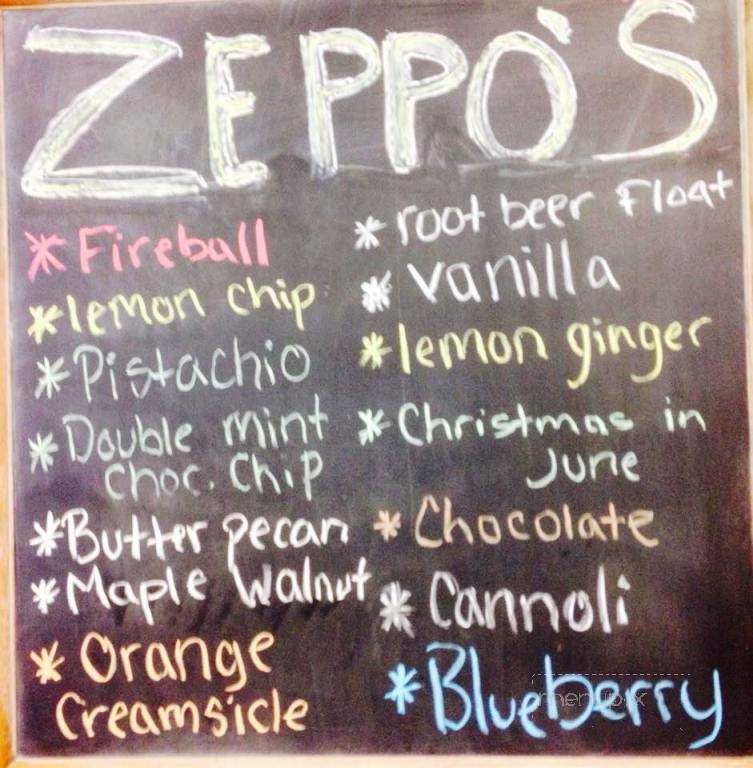 ZEPPO'S
* Fireball
* lemon chip
* Pistachio
* Double mint
choc. chip
* Butter pecan
* Maple Walnut
* Orange
Creamsicle
* root beer Float
* vanilla
* lemon ginger
* Christmas in
June
* Chocolate
* Cannoli
* Blueberry
menupix